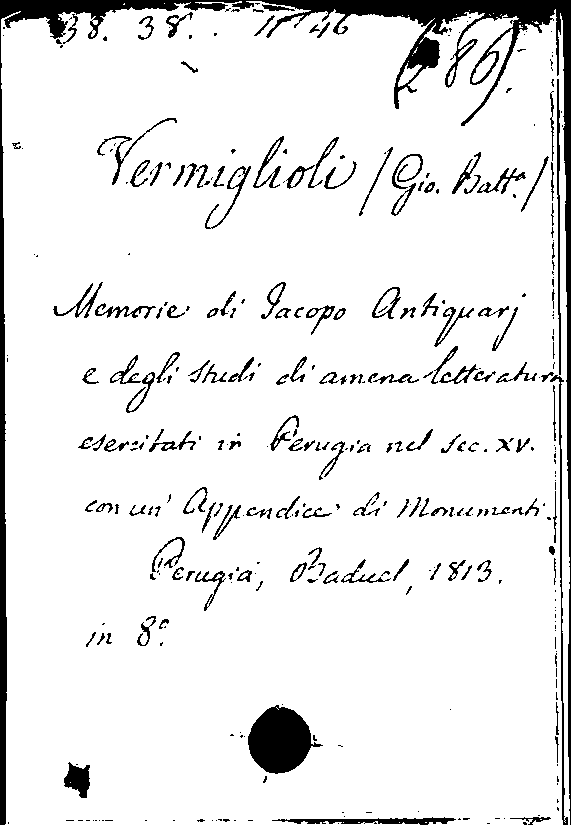 38. 38. . nº 46
(286).
Vermiglioli / Gio. Battª. /
Memorie di Jacopo Antiquarj
e degli studi di amena letteratura
esercitati in Perugia nel sec. XV.
con un' Appendice di Monumenti.
Perugia, Baduel, 1813.
in 8º.